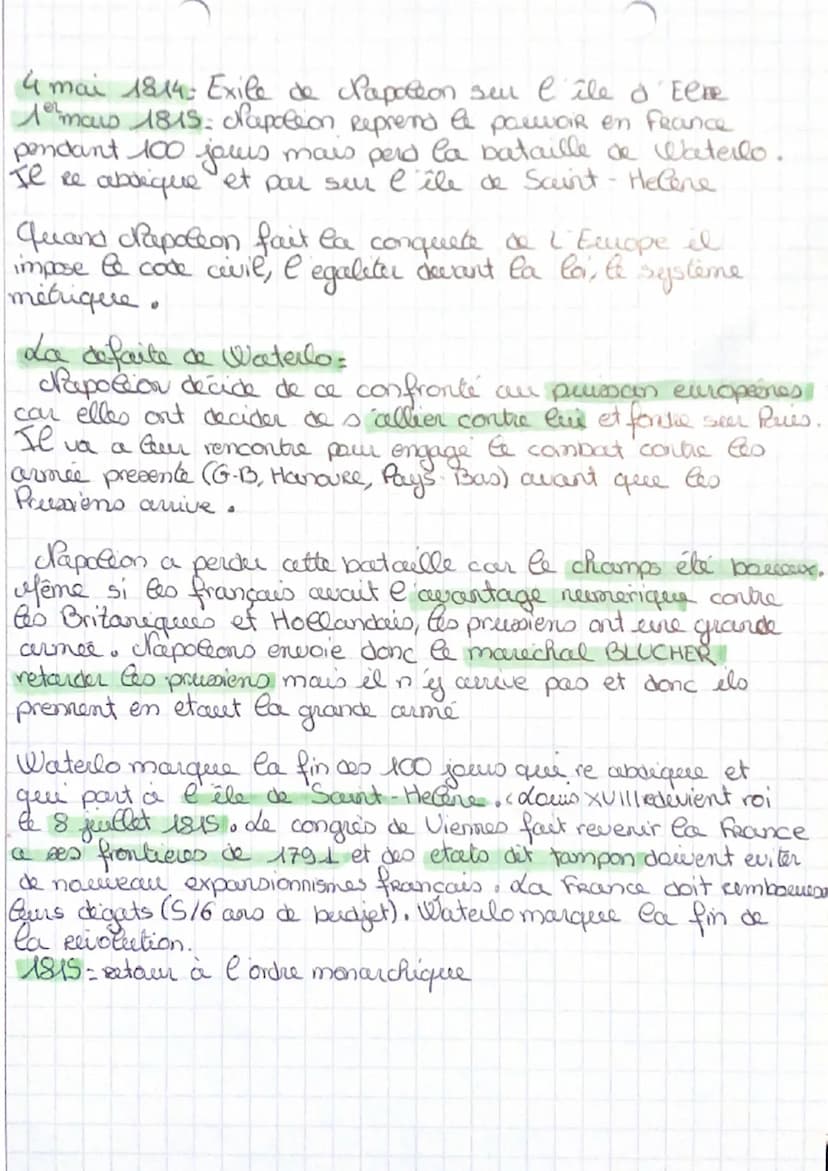 4 mai 1814: Exile de Napoléon sur l'île d'Elbe
1er mars 1815: Napoléon reprend le pouvoir en France
pendant 100 jours mais perd la bataille de Waterlo.
Il re abdique et par sur l'île de Saint-Helène
Quand Napoléon fait la conquete de l'Europe il
impose le code civil, l'egaliter devant la loi, le système
métrique.
La defaite de Waterlo:
Napoléon décide de ce confronté au puissan européenes
car elles ont decider de s'allier contre lui et fondre sur Paris.
Il va a leur rencontre pour engagé le combat contre les
armée presente (G-B, Hanovre, Pays-Bas) avant que les
Prussiens arrive.
Napoléon a perdu cette bataille car le champs été boueux.
Même si les français avait l'avantage numerique contre
les Britaniques et Hollandais, les prussiens ont une grande
armée. Napoléons envoie donc le marechal BLUCHER
retarder les prussiens mais il n'y arrive pas et donc ils
prennent en etaut la grande armé
Waterlo marque la fin des 100 jours qui re abdique et
qui part à l'île de Saint-Helène. Louis XVIII redevient roi
le 8 juillet 1815. Le congrès de Viennes fait revenir la France
a ses frontières de 1791 et des etats dit tampon doivent eviter
de nouveau expansionnismes français. La France doit rembourser
leurs dégats (5/6 ans de budjet). Waterlo marque la fin de
la révolution.
1815: retour à l'ordre monarchique